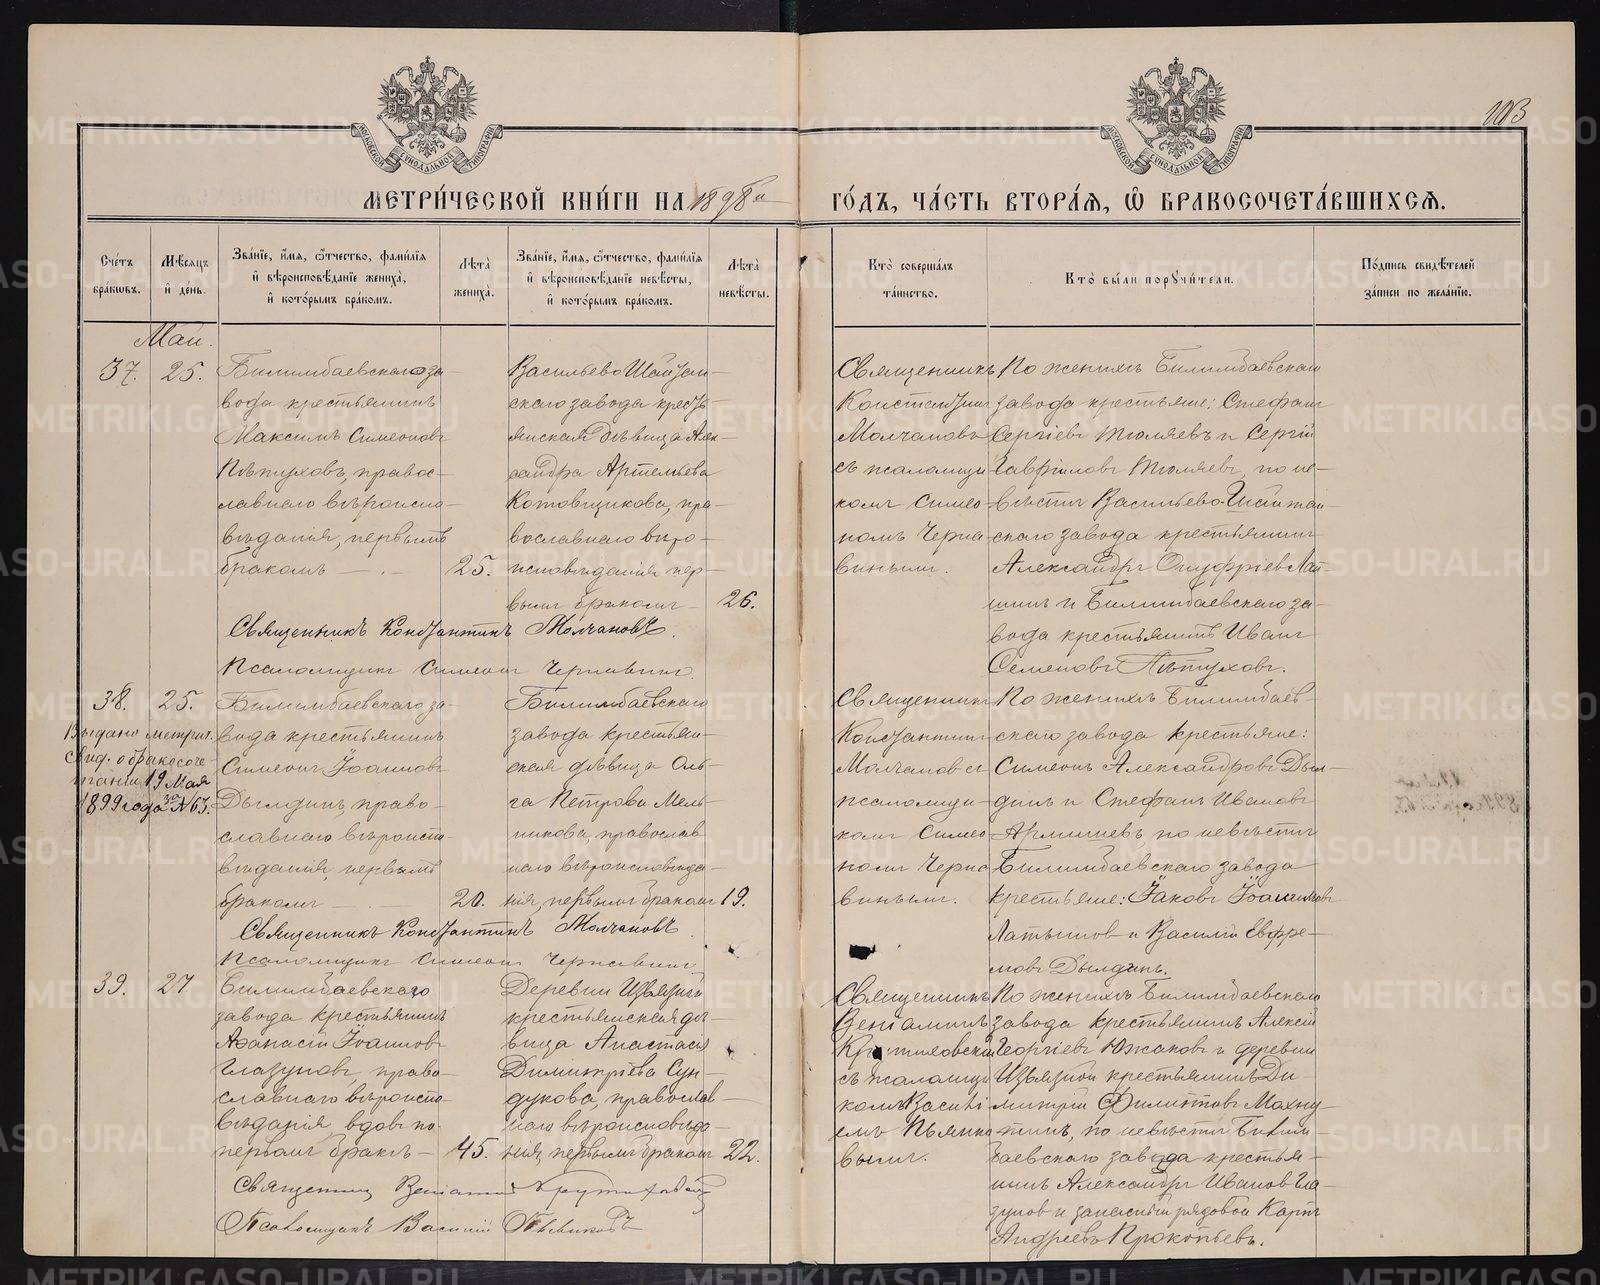 103
МЕТРИ́ЧЕСКОЙ КНИ́ГИ НА 1898й ГО́ДЪ, ЧА́СТЬ ВТОРА́Я, Ѡ҆ БРАКОСОЧЕТА́ВШИХСѦ.
Сче́тъ бра́кѡвъ.
Мѣ́сяцъ и҆ де́нь.
Зва́нїе, и҆́мя, ѻ҆́тчество, фами́лїя и҆ вѣроисповѣ́данїе жениха̀, и҆ кото́рымъ бра́комъ.
Лѣта̀ жениха̀.
Зва́нїе, и҆́мя, ѻ҆́тчество, фами́лїя и҆ вѣроисповѣ́данїе невѣ́сты, и҆ кото́рымъ бра́комъ.
Лѣта̀ невѣ́сты.
Кто̀ соверша́лъ та́инство.
Кто̀ бы́ли порꙋчи́тели.
По́дпись свидѣ́телей за́писи по жела́нїю.
Май.
37. 25.
Билимбаевскаго за-
вода крестьянинъ
Максимъ Симеоновъ
Пѣтуховъ, правос-
лавнаго вѣроиспо-
вѣданія, первымъ
бракомъ — 25.
Васильево Шайтан-
скаго завода кресть-
янская дѣвица Алек-
сандра Артемьева
Котовщикова, пра-
вославнаго вѣро-
исповѣданія, пер-
вымъ бракомъ — 26.
Священникъ
Константинъ
Молчановъ
съ псаломщи-
комъ Симео-
номъ Черна-
винымъ.
По женихѣ Билимбаевскаго
завода крестьяне: Стефанъ
Сергіевъ Тюляевъ и Сергій
Гавріиловъ Тюляевъ, по не-
вѣстѣ Васильево-Шайтан-
скаго завода крестьянинъ
Александръ Онуфріевъ
и Билимбаевскаго за-
вода крестьянинъ Иванъ
Семеновъ Пѣтуховъ.
Священникъ Константинъ Молчановъ.
Псаломщикъ Симеонъ Чернавинъ.
38. 25.
Выдано метрич.
свид. о бракосоче-
таніи 19 Мая
1899 года за № 63.
Билимбаевскаго за-
вода крестьянинъ
Симеонъ Іоанновъ
Дылдинъ, право-
славнаго вѣроиспо-
вѣданія, первымъ
бракомъ — 20.
Билимбаевскаго
завода крестьян-
ская дѣвица Оль-
га Петрова Мель-
никова, православ-
наго вѣроисповѣда-
нія, первымъ бракомъ 19.
Священникъ
Константинъ
Молчановъ съ
псаломщи-
комъ Симео-
номъ Черна-
винымъ.
По женихѣ Билимбаев-
скаго завода крестьяне:
Симеонъ Александровъ Дыл-
динъ и Стефанъ Ивановъ
по невѣстѣ
Билимбаевскаго завода
крестьяне: Іаковъ Іоанновъ
Латыповъ и Василій Евфре-
мовъ Дылдинъ.
Священникъ Константинъ Молчановъ
Псаломщикъ Симеонъ Чернавинъ
39. 27
Билимбаевскаго
завода крестьянинъ
Аѳанасій Іоанновъ
Глазуновъ, право-
славнаго вѣроиспо-
вѣданія, вдовъ по
первомъ бракѣ — 45.
Деревни Извѣзной
крестьянская дѣ-
вица Анастасія
Димитріева Сун-
дукова, православ-
наго вѣроисповѣда-
нія, первымъ бракомъ 22.
Священникъ
Веніаминъ
съ псаломщи-
комъ Василі-
емъ Пьянко-
вымъ.
По женихѣ Билимбаевскаго
завода крестьянинъ Алексій
Георгіевъ Южаковъ и деревни
Извѣзной крестьянинъ Ди-
митрій Филиповъ Махну-
тинъ, по невѣстѣ Билим-
баевскаго завода крестья-
нинъ Александръ Ивановъ Гла-
зуновъ и запасный рядовой Карпъ
Андреевъ Прокопьевъ.
Священникъ Веніаминъ
Псаломщикъ Василій Пьянковъ